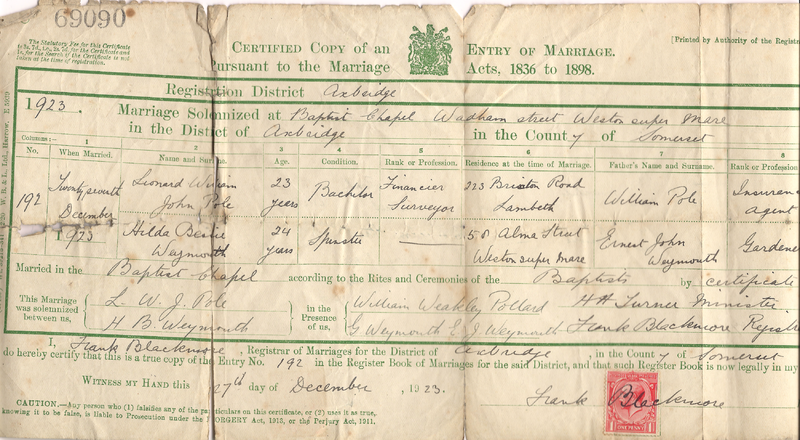 69090
The Statutory Fee for this Certificate
is 2s. 7d.
for the Search of the Certificate
taken at the time of registration.
CERTIFIED COPY OF AN ENTRY OF MARRIAGE. [Printed by Authority of the Registr
Pursuant to the Marriage Acts, 1836 to 1898.
Registration District Axbridge
1923. Marriage Solemnized at Baptist Chapel Wadham Street Weston super Mare
in the District of Axbridge in the County of Somerset
Columns:— 1 2 3 4 5 6 7 8
No. When Married. Name and Surname. Age. Condition. Rank or Profession. Residence at the time of Marriage. Father's Name and Surname. Rank or Profession
192 Twenty seventh December 1923 Leonard William John Pole 23 years Bachelor Financier Surveyor 223 Brixton Road Lambeth William Pole Insuran agent
Hilda Bessie Weymouth 24 years Spinster — 50 Alma Street Weston super Mare Ernest John Weymouth Gardene
Married in the Baptist Chapel according to the Rites and Ceremonies of the Baptists by certificate
This Marriage was solemnized between us, L. W. J. Pole in the Presence of us, William Weakley Pollard H H Turner Minister
H B Weymouth G Weymouth E J Weymouth Frank Blackmore Registr
I, Frank Blackmore, Registrar of Marriages for the District of Axbridge, in the County of Somerset
do hereby certify that this is a true copy of the Entry No. 192 in the Register Book of Marriages for the said District, and that such Register Book is now legally in my
WITNESS MY HAND this 27th day of December, 1923.
Frank Blackmore
CAUTION.—Any person who (1) falsifies any of the particulars on this certificate, or (2) uses it as true,
knowing it to be false, is liable to Prosecution under the FORGERY Act, 1913, or the Perjury Act, 1911.
ONE PENNY
W. B. & L. Ltd., Harrow. E 5939